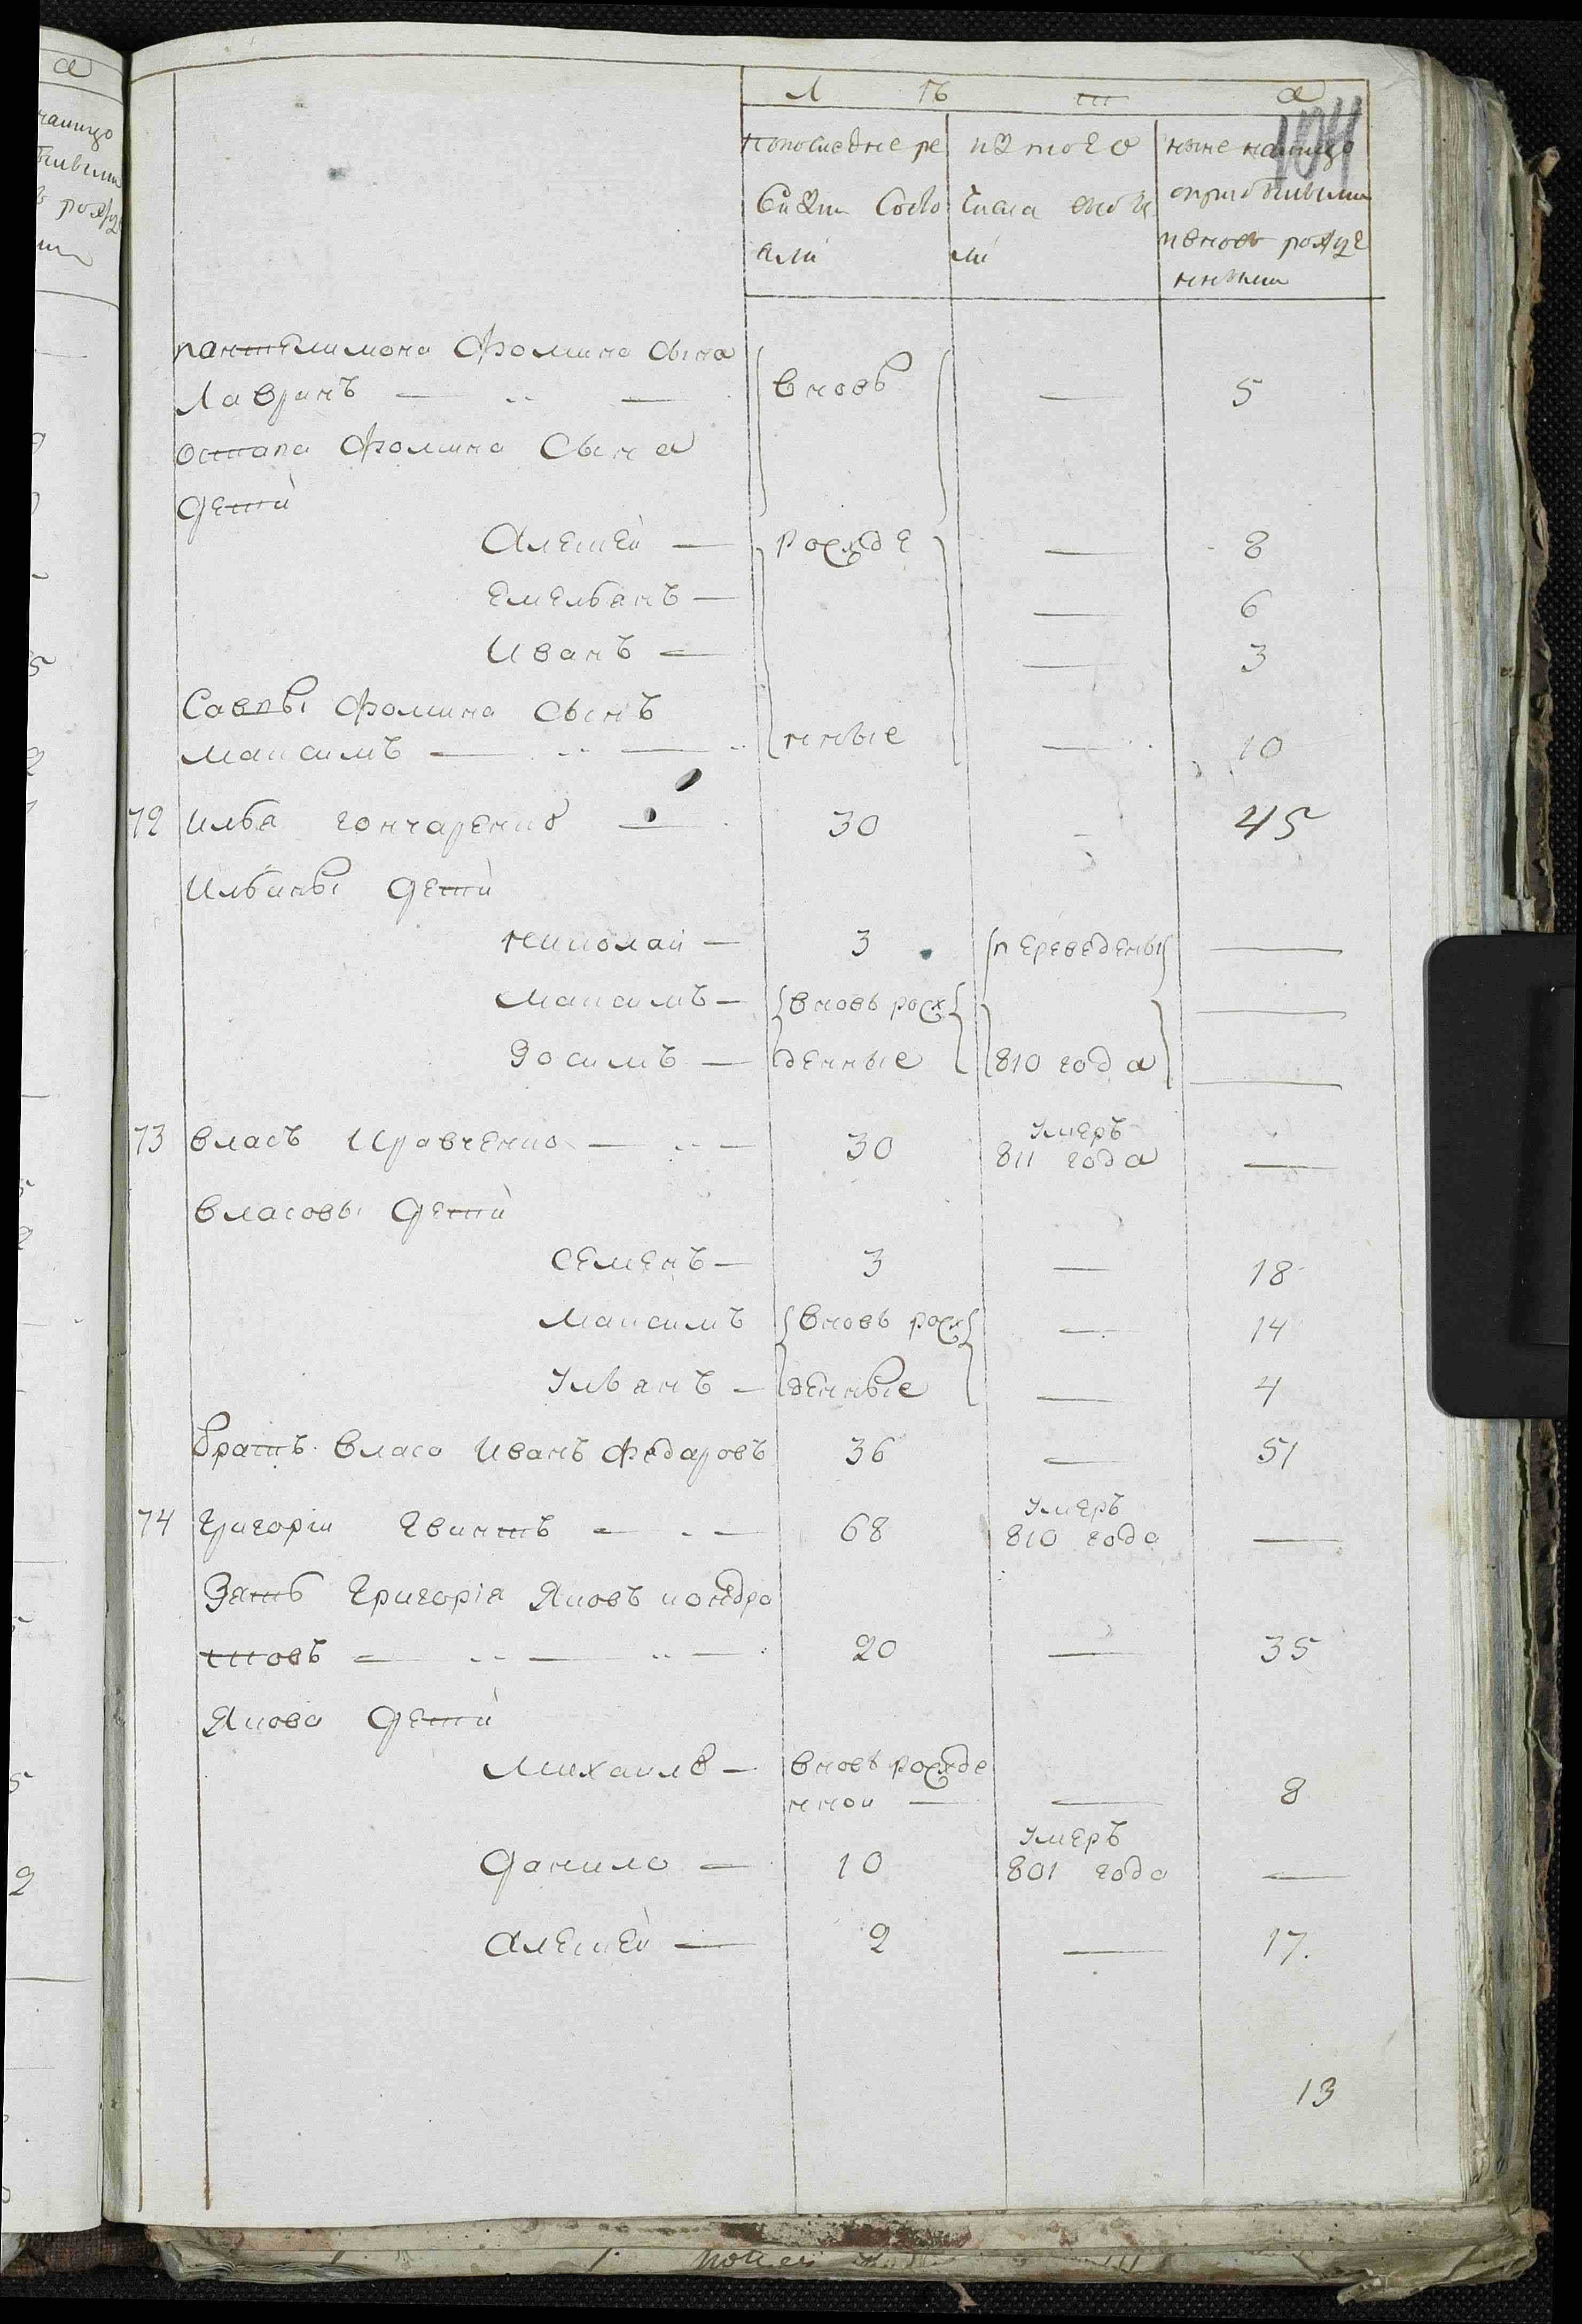 Л ѣ т а
104
попоследне ре из того ныне налицо
визiи состо числа выбы сприбылыми
яли ли ивновь рожде
нными
пантелимона Фомина сына
Лавринъ — вновь — 5
остапа Фомина Сына
дети
Алексей — рожде — 8
Емельянъ — — 6
Иванъ — — 3
Саввы Фомина Сынъ
максимъ — нные — 10
72 Илья гончаренко — 30 — 45
Ильины дети
николай — 3 переведены —
максимъ — вновь рож —
Зосимъ — денные 810 года —
73 власъ Кравченко — 30 умеръ 811 года —
власовы дети
семенъ — 3 — 18
Максимъ вновь рож — 14
Ульянъ — денные — 4
братъ власа Иванъ Федоровъ 36 — 51
74 Григорiи Гвинтъ — 68 умеръ 810 года —
Зять Григорiя Яковъ кондра
товъ — 20 — 35
Якова дети
Михаилъ — вновь рожде
нной — — 8
данило — 10 умеръ 801 года —
Алексей — 2 — 17.
13